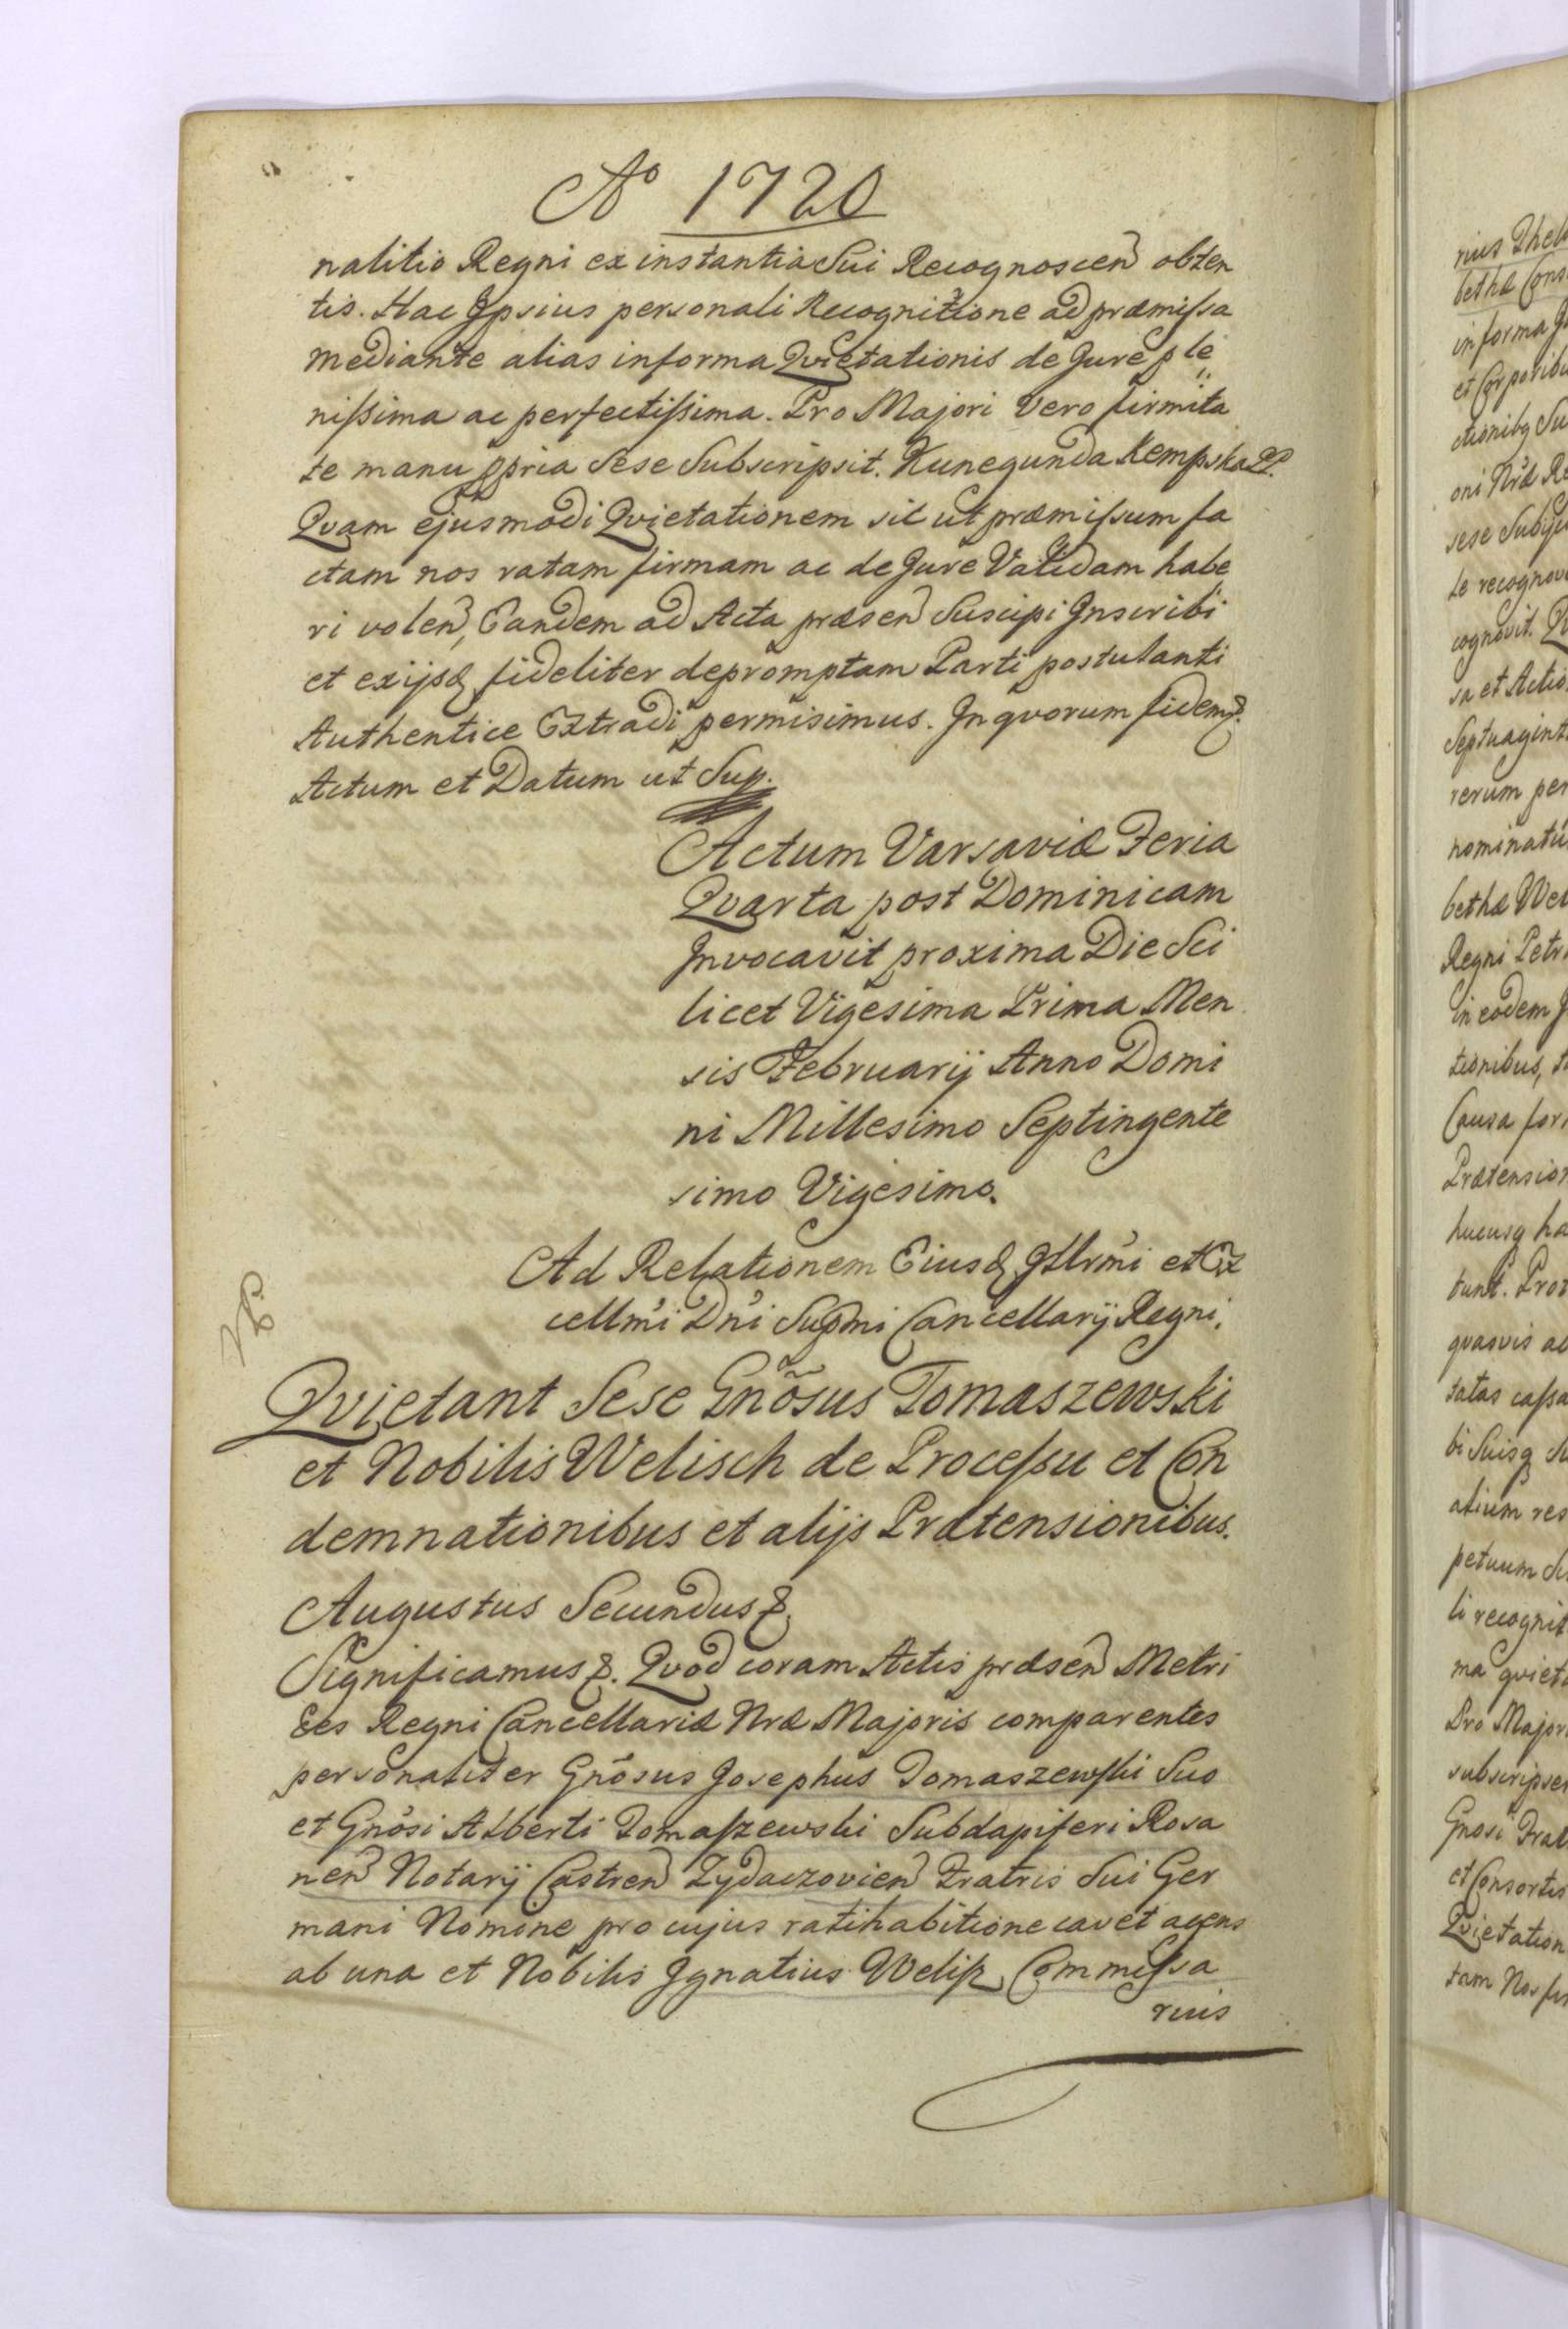 Aº 1720
nalitio Regni ex instantia Sui Recognoscen obten
tis. Hac Ipsius personali Recognitione ad præmissa
mediante alias in forma Qvietationis de Jure ple
nissima ac perfectissima. Pro Majori Vero firmita
te manu ppria Sese Subscripsit. Kunegunda Kempska PP.
Qvam ejusmodi Qvietationem sic ut præmissum fa
ctam nos ratam firmam ac de Jure Validam habe
ri volen, Eandem ad Acta præsen Suscipi Inscribi
et ex ijsd fideliter depromptam Parti postulanti
Authentice Extradi permisimus. In qvorum fidem &.
Actum et Datum ut Sup.
Actum Varsaviæ Feria
Qvarta post Dominicam
Invocavit proxima Die Sci
licet Vigesima Prima Men
sis Februarij Anno Domi
ni Millesimo Septingente
simo Vigesimo.
Ad Relationem Eiusd Illrmi et Ex
cellmi Dni Supmi Cancellarij Regni.
Qvietant Sese Gnõsus Tomaszewski
et Nobilis Welisch de Processu et Con
demnationibus et alijs Prætensionibus.
Augustus Secundus &.
Significamus &. Qvod coram Actis præsen Metri
ces Regni Cancellariæ Nræ Majoris comparentes
personaliter Gnosus Josephus Tomaszewski Suo
et Gnosi Alberti Tomaszewski Subdapiferi Rosa
nen Notarij Castren Zydaczovien Fratris Sui Ger
mani Nomine pro cujus ratihabitione cavet agens
ab una et Nobilis Ignatius Welisz Commissa
rius
rius
betha Cons
in forma
et Corporibu
ctionibq Su
oni Nræ Re
sese Subij
te recognov
cognovit.
sa et Actio
Septuagint
rerum per
nominatu
bethæ Wel
Regni Petr
in eodem J
tionibus,
Causa for
Prætension
hucusq ha
bunt. Prot
qvasvis ac
tatas cassa
bi Suisq
alium res
petuum
li recognit
ma qvieta
Pro Majori
subscripser
Gnosi Frat
et Consortis
Qvietation
tam Nos